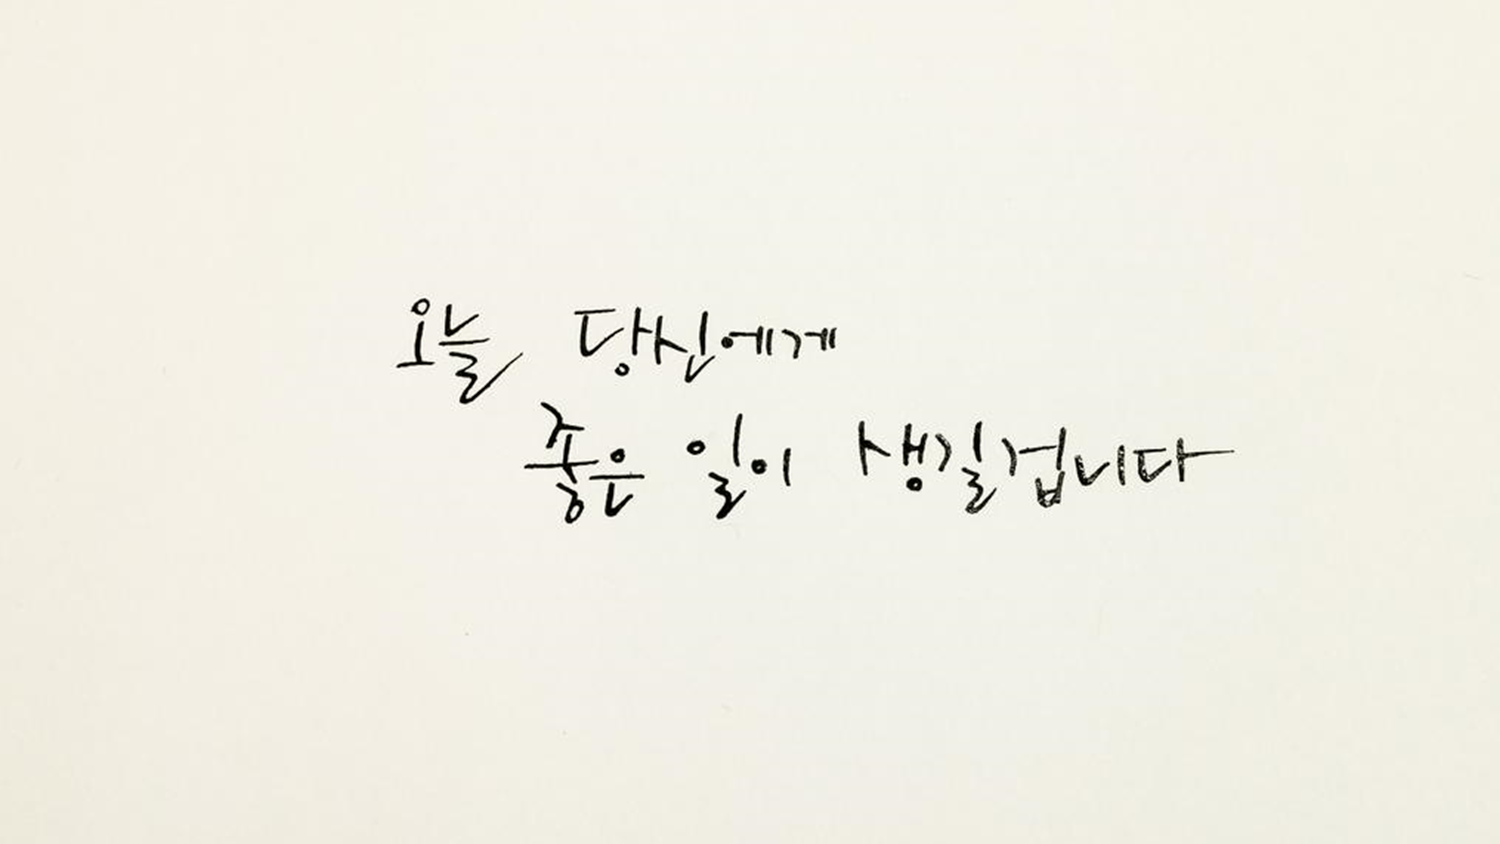 오늘 당신에게
좋은 일이 생길겁니다